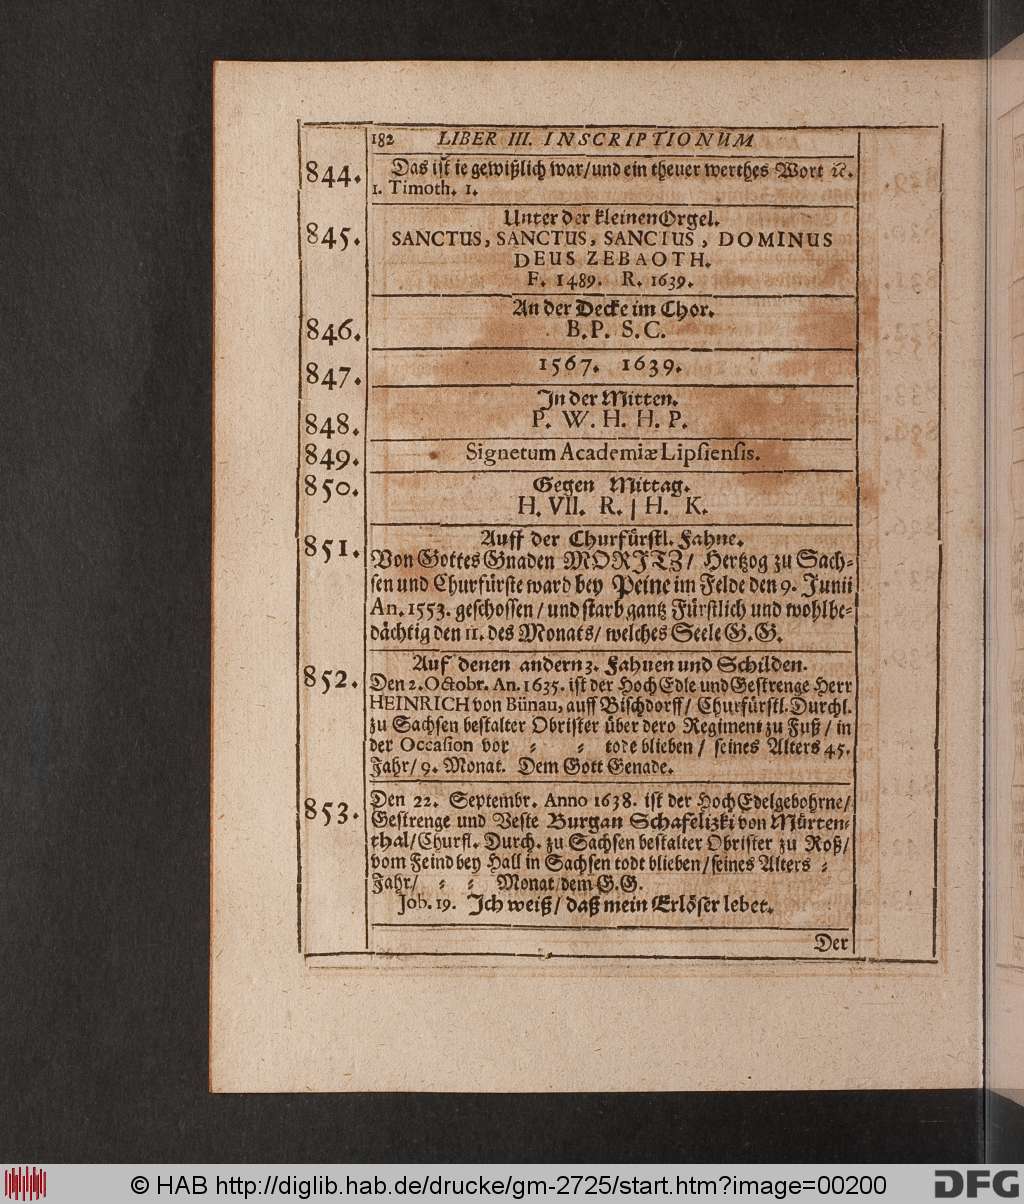 182 LIBER III. INSCRIPTIONUM
844. Das ist ie gewißlich war/und ein theuer werthes Wort ꝛc.
1. Timoth. 1.
Unter der kleinen Orgel.
845. SANCTUS, SANCTUS, SANCTUS, DOMINUS
DEUS ZEBAOTH.
F. 1489. R. 1639.
An der Decke im Chor.
846. B.P. S.C.
847. 1567. 1639.
In der Mitten.
848. P. W. H. H. P.
849. Signetum Academiæ Lipsiensis.
850. Gegen Mittag.
H. VII. R. | H. K.
851. Auff der Churfürstl. Fahne.
Von Gottes Gnaden MORITZ/ Hertzog zu Sach-
sen und Churfürste ward bey Peine im Felde den 9. Junii
An. 1553. geschossen/ und starb gantz Fürstlich und wohlbe-
dächtig den 11. des Monats/ welches Seele G.G.
Auf denen andern 3. Fahnen und Schilden.
852. Den 2. Octobr. An. 1635. ist der HochEdle und Gestrenge Herr
HEINRICH von Bünau, auff Bischdorff/ Churfürstl. Durchl.
zu Sachsen bestalter Obrister über dero Regiment zu Fuß/ in
der Occasion vor - - todt blieben/ seines Alters 45.
Jahr/ 9. Monat. Dem Gott Genade.
853. Den 22. Septembr. Anno 1638. ist der HochEdelgebohrne/
Gestrenge und Veste Burgan Schafelizki von Mürten-
thal/Churfl. Durch. zu Sachsen bestalter Obrister zu Roß/
vom Feind bey Hall in Sachsen todt blieben/seines Alters -
Jahr/ - - Monat/dem G.G.
Job. 19. Ich weiß/ daß mein Erlöser lebet.
Der
© HAB http://diglib.hab.de/drucke/gm-2725/start.htm?image=00200
DFG